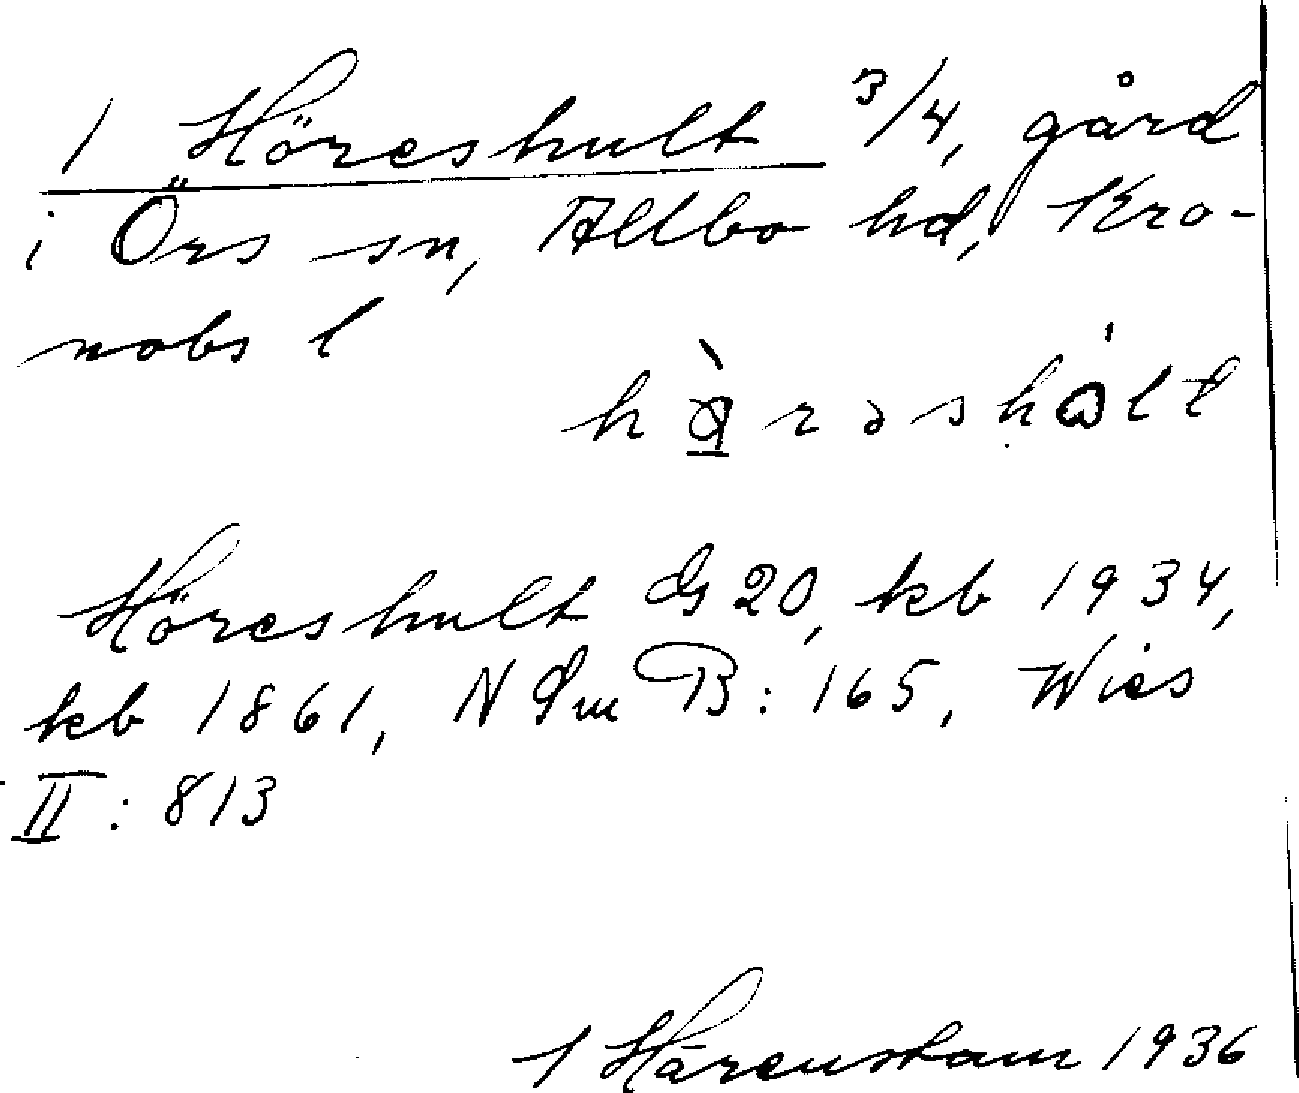 1 Höreshult 3/4, gård
i Örs sn, Allbo hd, Kro-
nobs l
Höreshult GS 20, kb 1934,
kb 1861, N B: 165, Wies
II: 813
Härenstam 1936